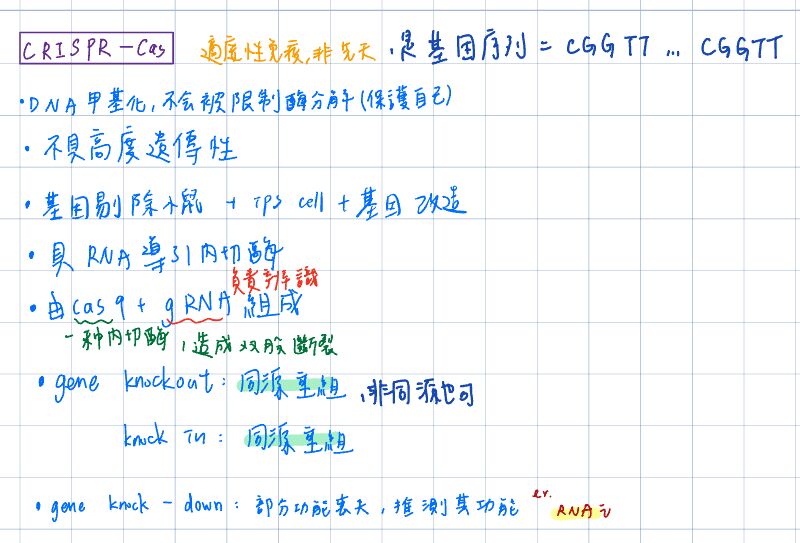 CRISPR-Cas 適應性免疫,非先天,是基因序列 = CGGTT ... CGGTT
·DNA甲基化,不会被限制酶分解(保護自己)
·不具高度遺傳性
·基因剔除小鼠 + iPS cell + 基因改造
·具RNA導引內切酶
負責辨識
·由cas9 + gRNA組成
一種內切酶,造成双股斷裂
·gene knockout:同源重組,非同源也可
knock in:同源重組
·gene knock-down:部分功能丧失,推測其功能 ex. RNAi